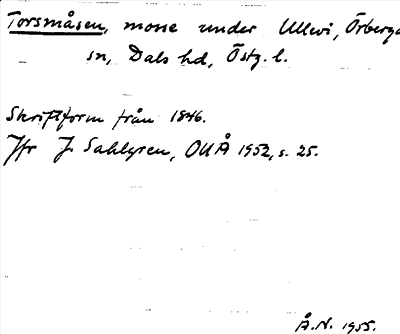 Torsmåsen, mosse under Ullevi, Örberga
sn, Dals hd, Östg. l.
Skriftform från 1846.
Jfr J. Sahlgren, OUÅ 1952, s. 25.
Å.N. 1955.